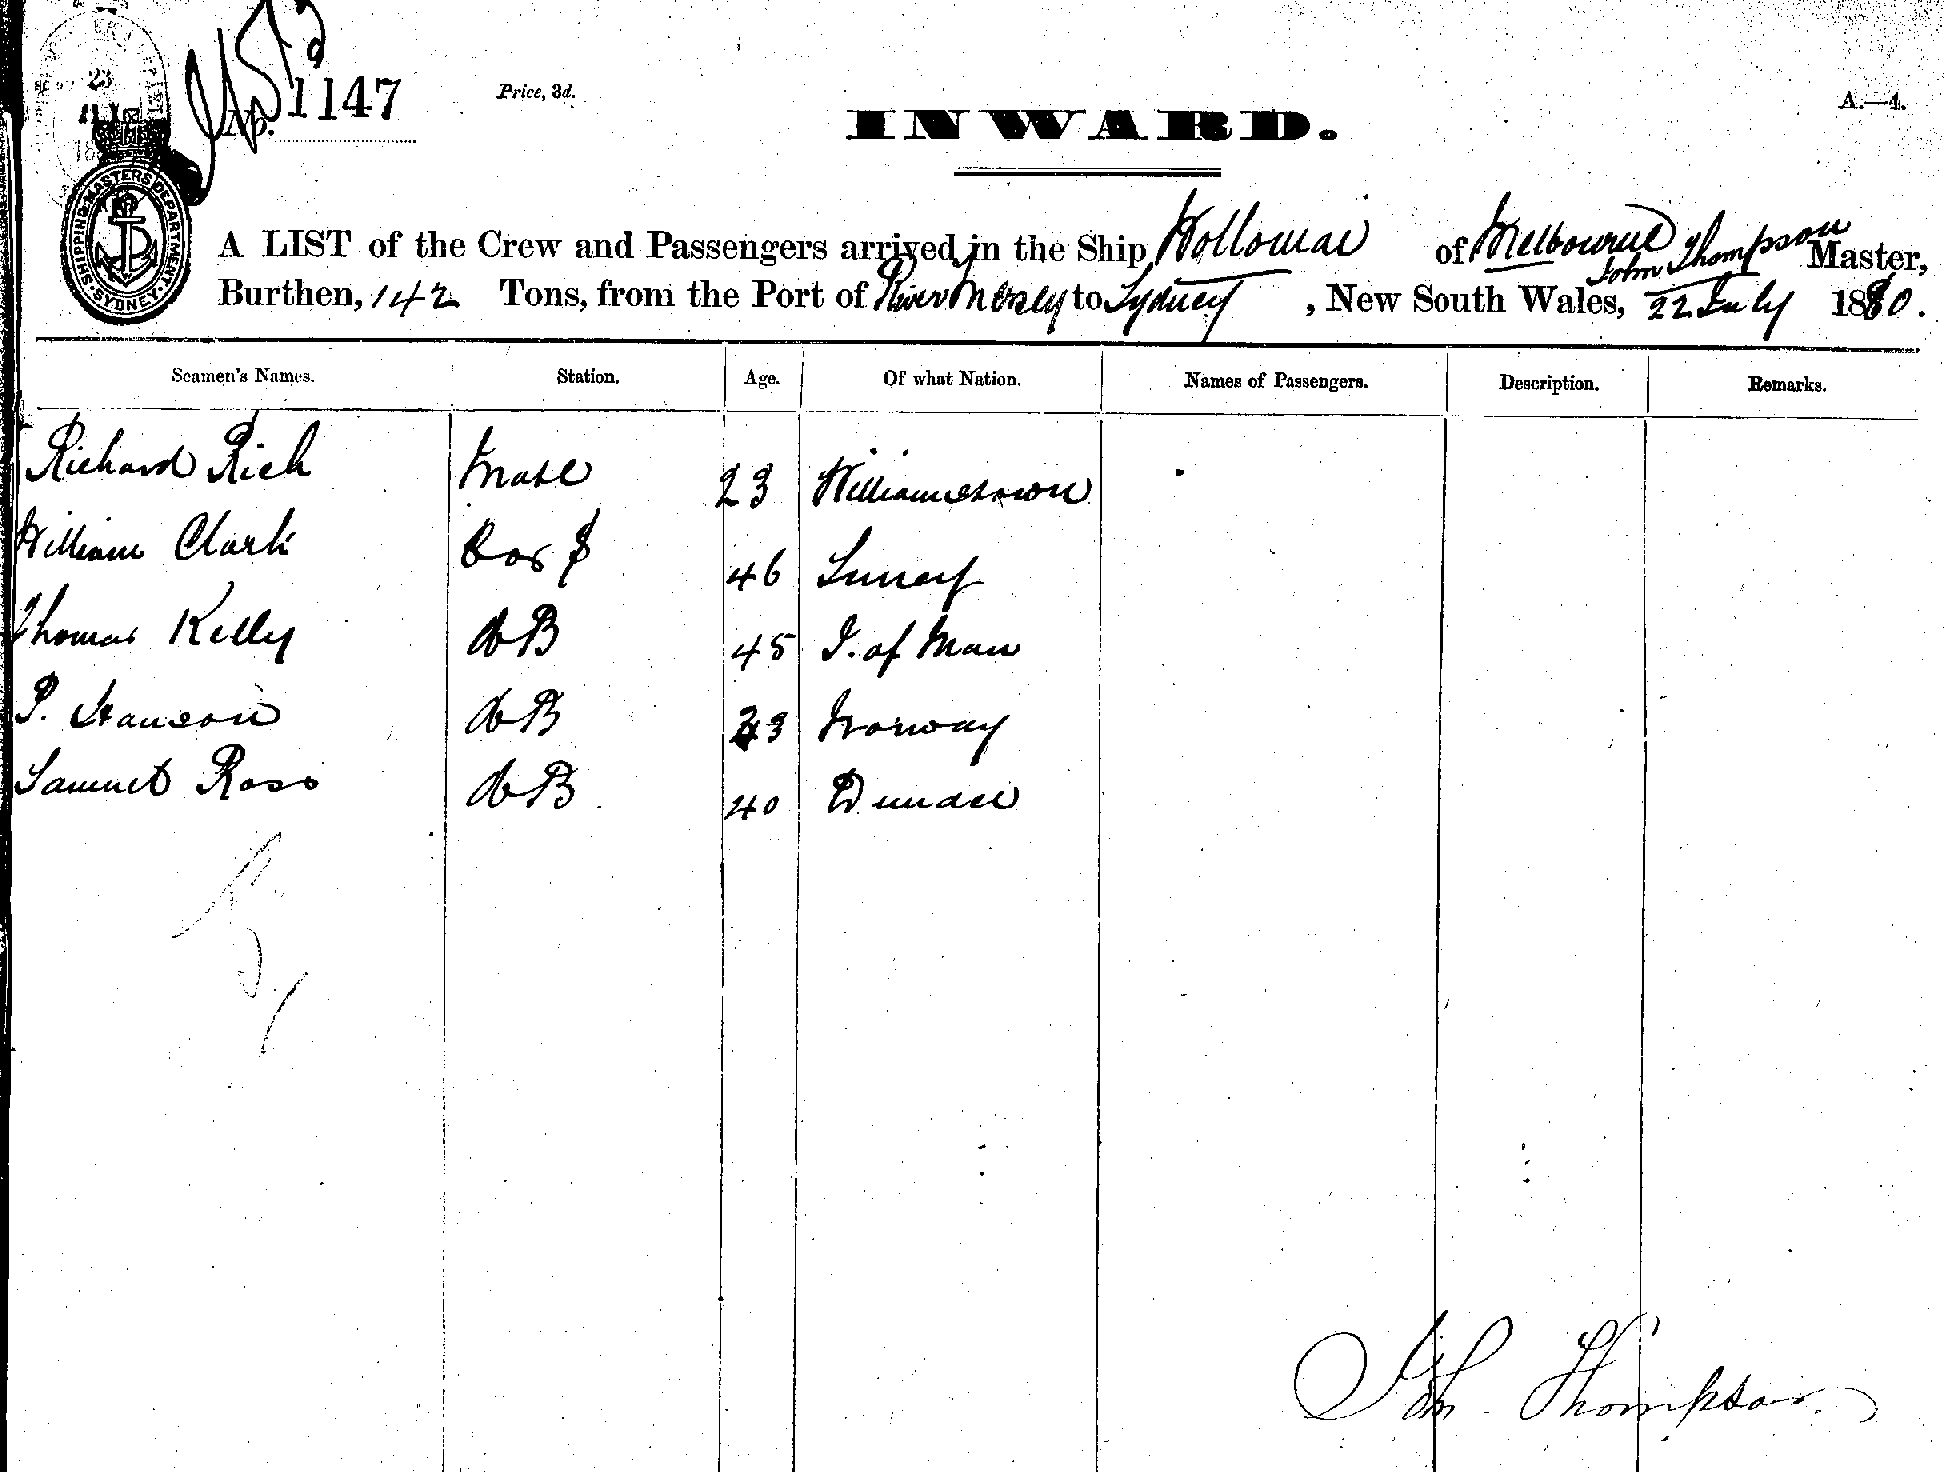 23
No. 1147
Price, 3d.
INWARD.
A.—4.
SHIPPING MASTERS DEPARTMENT SYDNEY
A LIST of the Crew and Passengers arrived in the Ship Wollomai of Melbourne John Thompson Master,
Burthen, 142 Tons, from the Port of River Mersey to Sydney, New South Wales, 22 July 1880.
Seamen's Names. Station. Age. Of what Nation. Names of Passengers. Description. Remarks.
Richard Rich Mate 23 Williamstown
William Clark 46 Surrey
Thomas Kelly AB 45 I. of Man
P. Hanson AB 23 Norway
Samuel Ross AB 40 Dundee
John Thompson